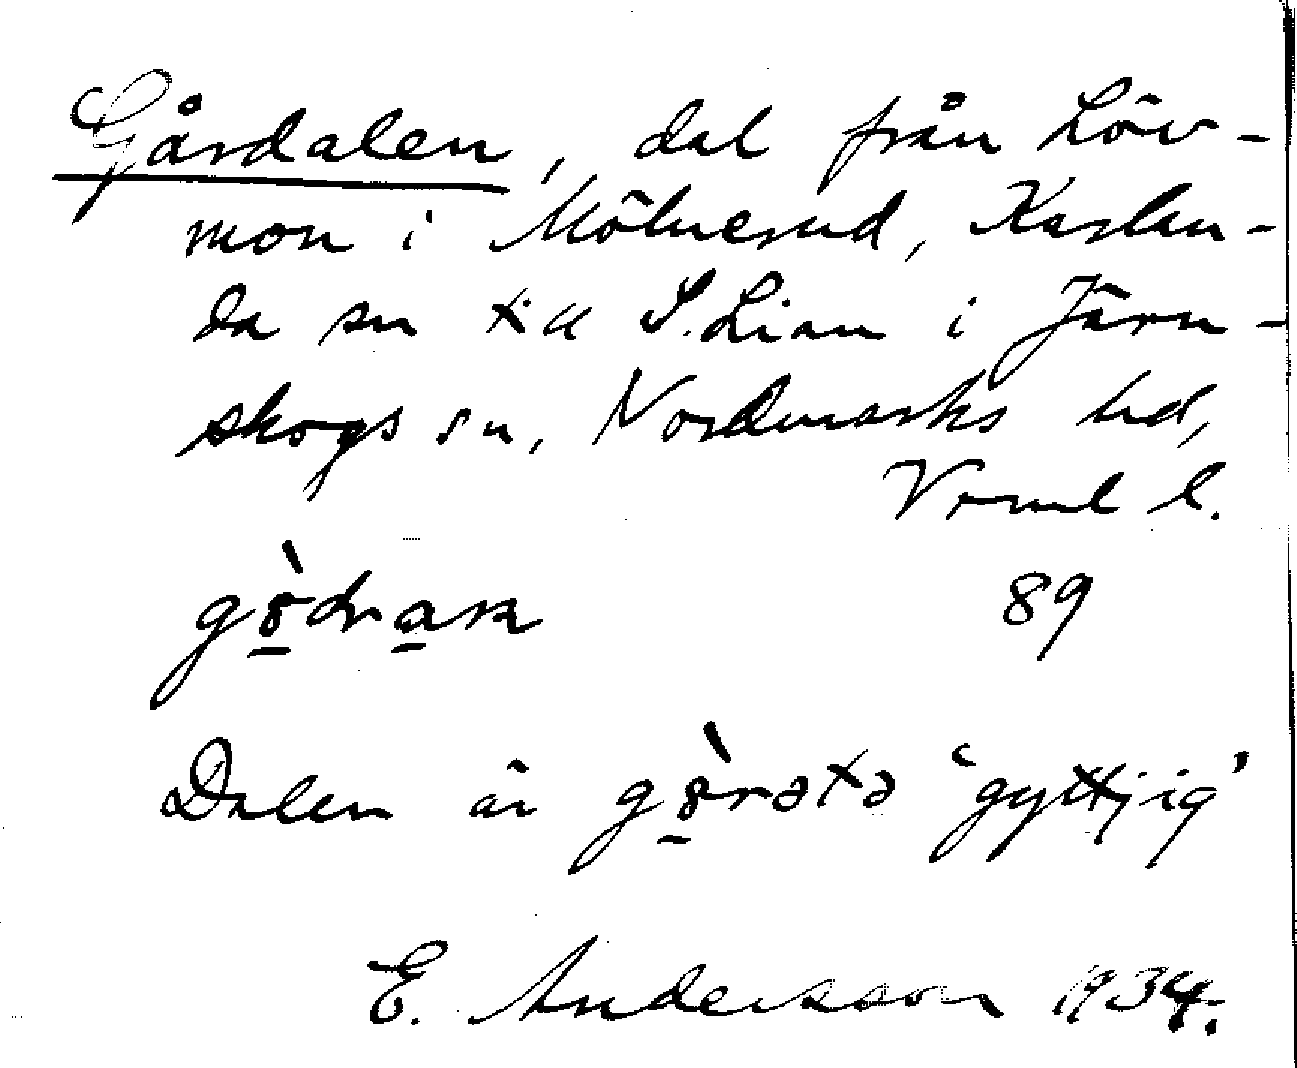 Gårdalen, dal från Löv-
mon i Mölnerud, Karlan-
da sn till S. Lian i Järn-
skogs sn, Nordmarks hd,
Vrml l.
89
Dalen är 'gyttjig'
E. Andersson 1934.